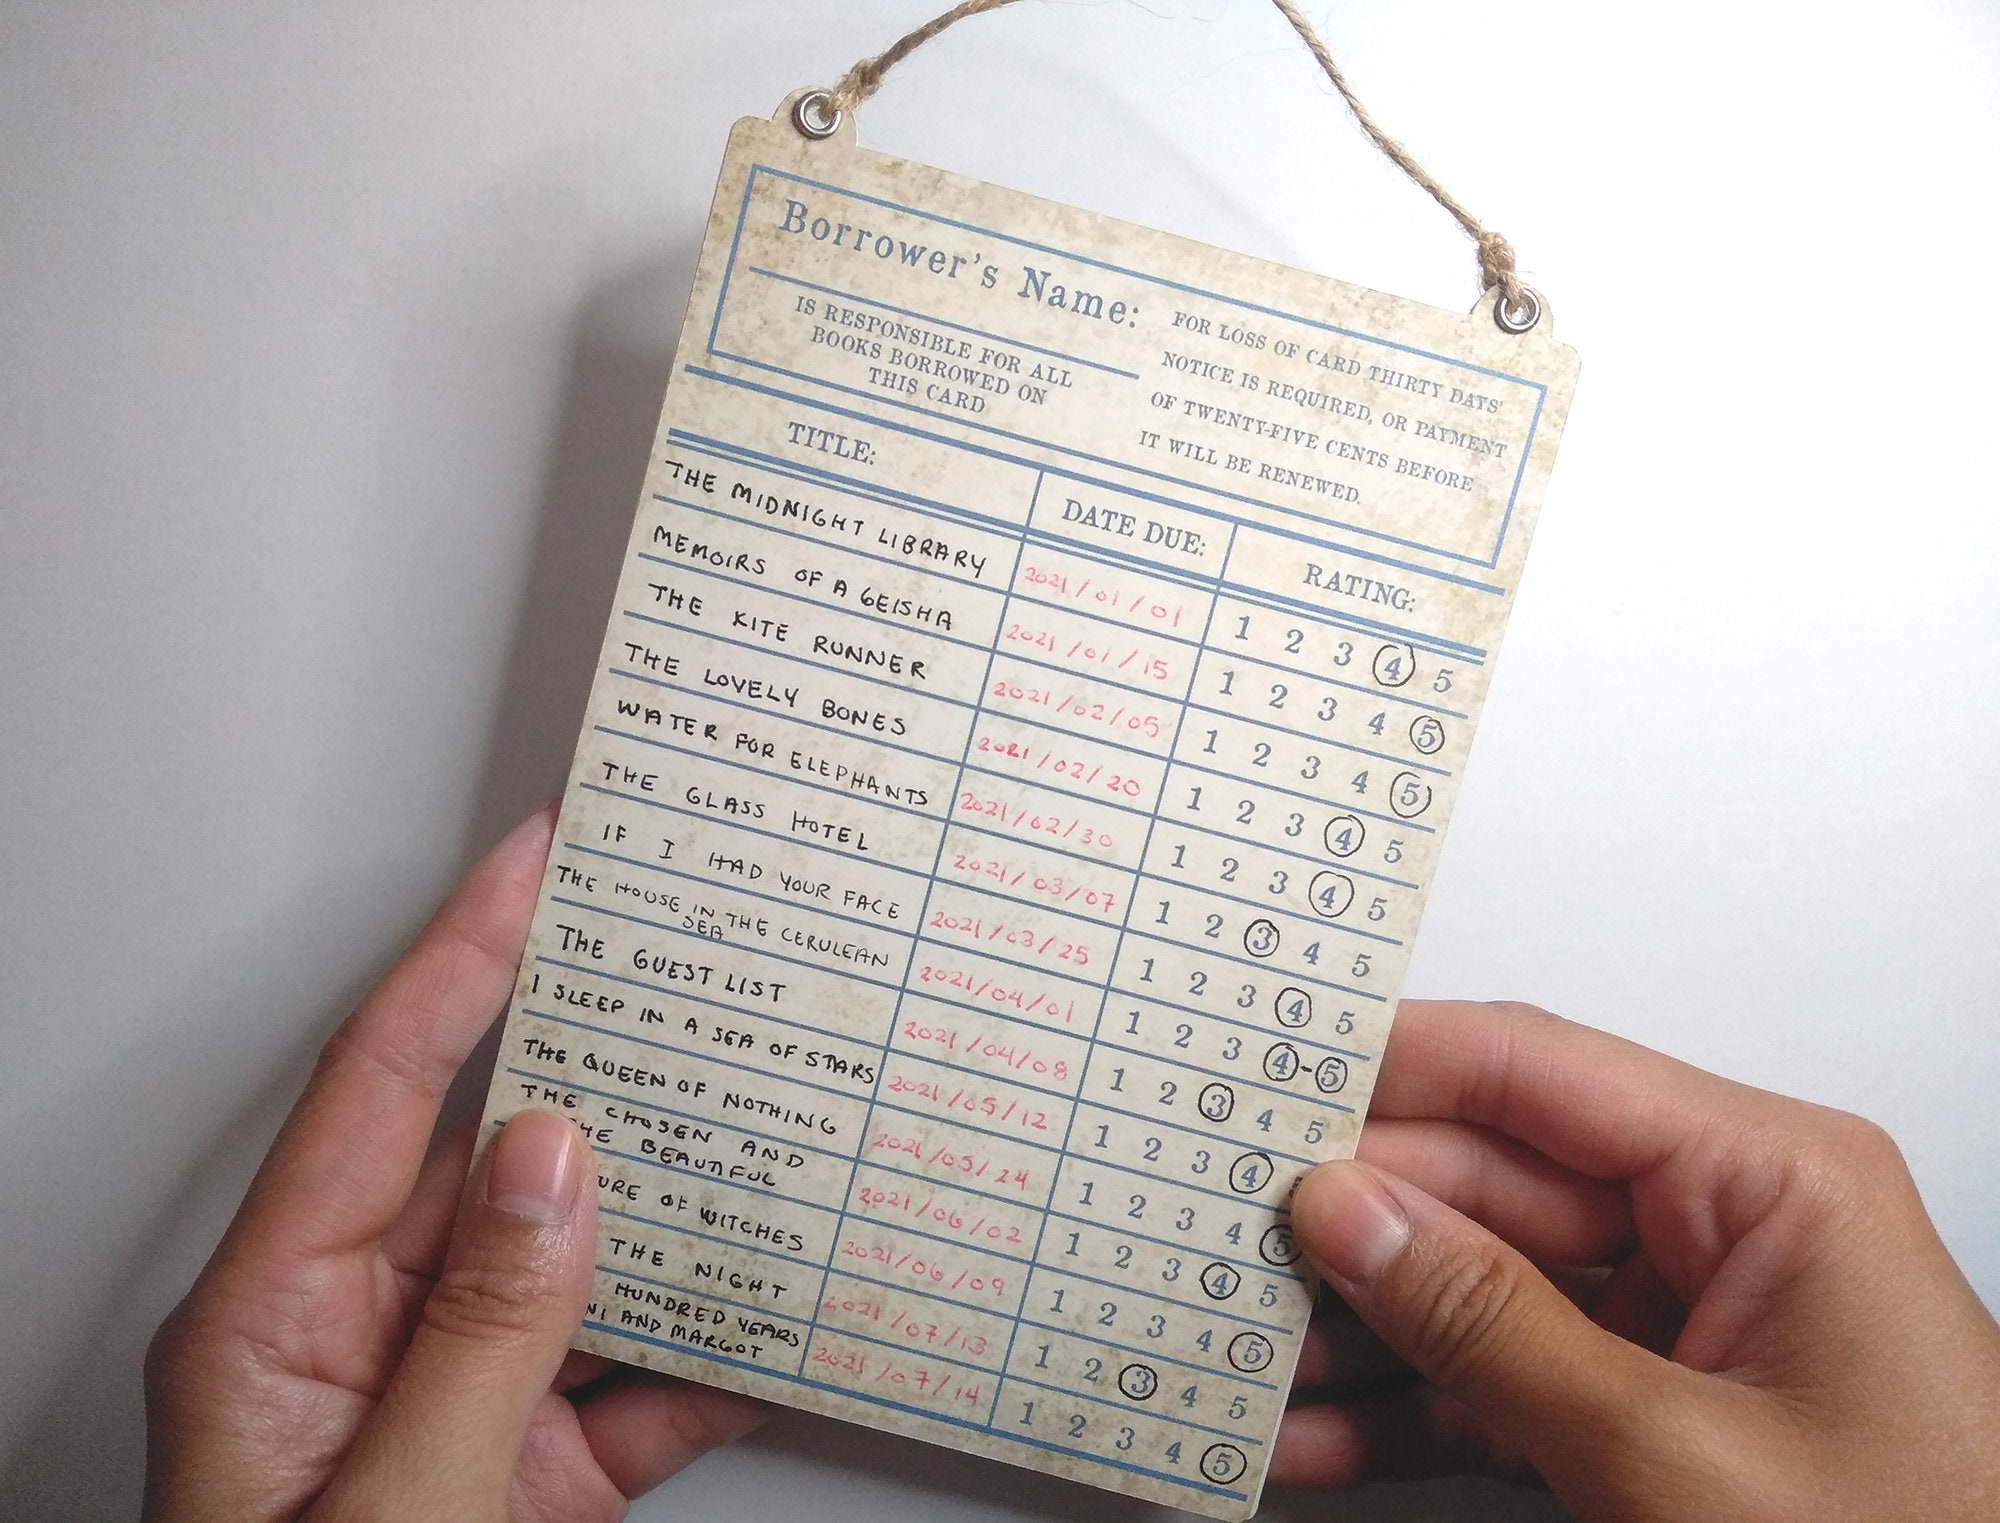 Borrower's Name:
IS RESPONSIBLE FOR ALL
BOOKS BORROWED ON
THIS CARD
FOR LOSS OF CARD THIRTY DAYS'
NOTICE IS REQUIRED, OR PAYMENT
OF TWENTY-FIVE CENTS BEFORE
IT WILL BE RENEWED.
TITLE: DATE DUE: RATING:
THE MIDNIGHT LIBRARY 2021/01/01 1 2 3 4 5
MEMOIRS OF A GEISHA 2021/01/15 1 2 3 4 5
THE KITE RUNNER 2021/02/05 1 2 3 4 5
THE LOVELY BONES 2021/02/20 1 2 3 4 5
WATER FOR ELEPHANTS 2021/02/30 1 2 3 4 5
THE GLASS HOTEL 2021/03/07 1 2 3 4 5
IF I HAD YOUR FACE 2021/03/25 1 2 3 4 5
THE HOUSE IN THE CERULEAN
SEA 2021/04/01 1 2 3 4-5
THE GUEST LIST 2021/04/08 1 2 3 4 5
I SLEEP IN A SEA OF STARS 2021/05/12 1 2 3 4
THE QUEEN OF NOTHING 2021/05/24 1 2 3 4 5
THE CHOSEN AND
THE BEAUTIFUL 2021/06/02 1 2 3 4 5
OF WITCHES 2021/06/09 1 2 3 4 5
THE NIGHT 2021/07/13 1 2 3 4 5
HUNDRED YEARS
AND MARGOT 2021/07/14 1 2 3 4 5